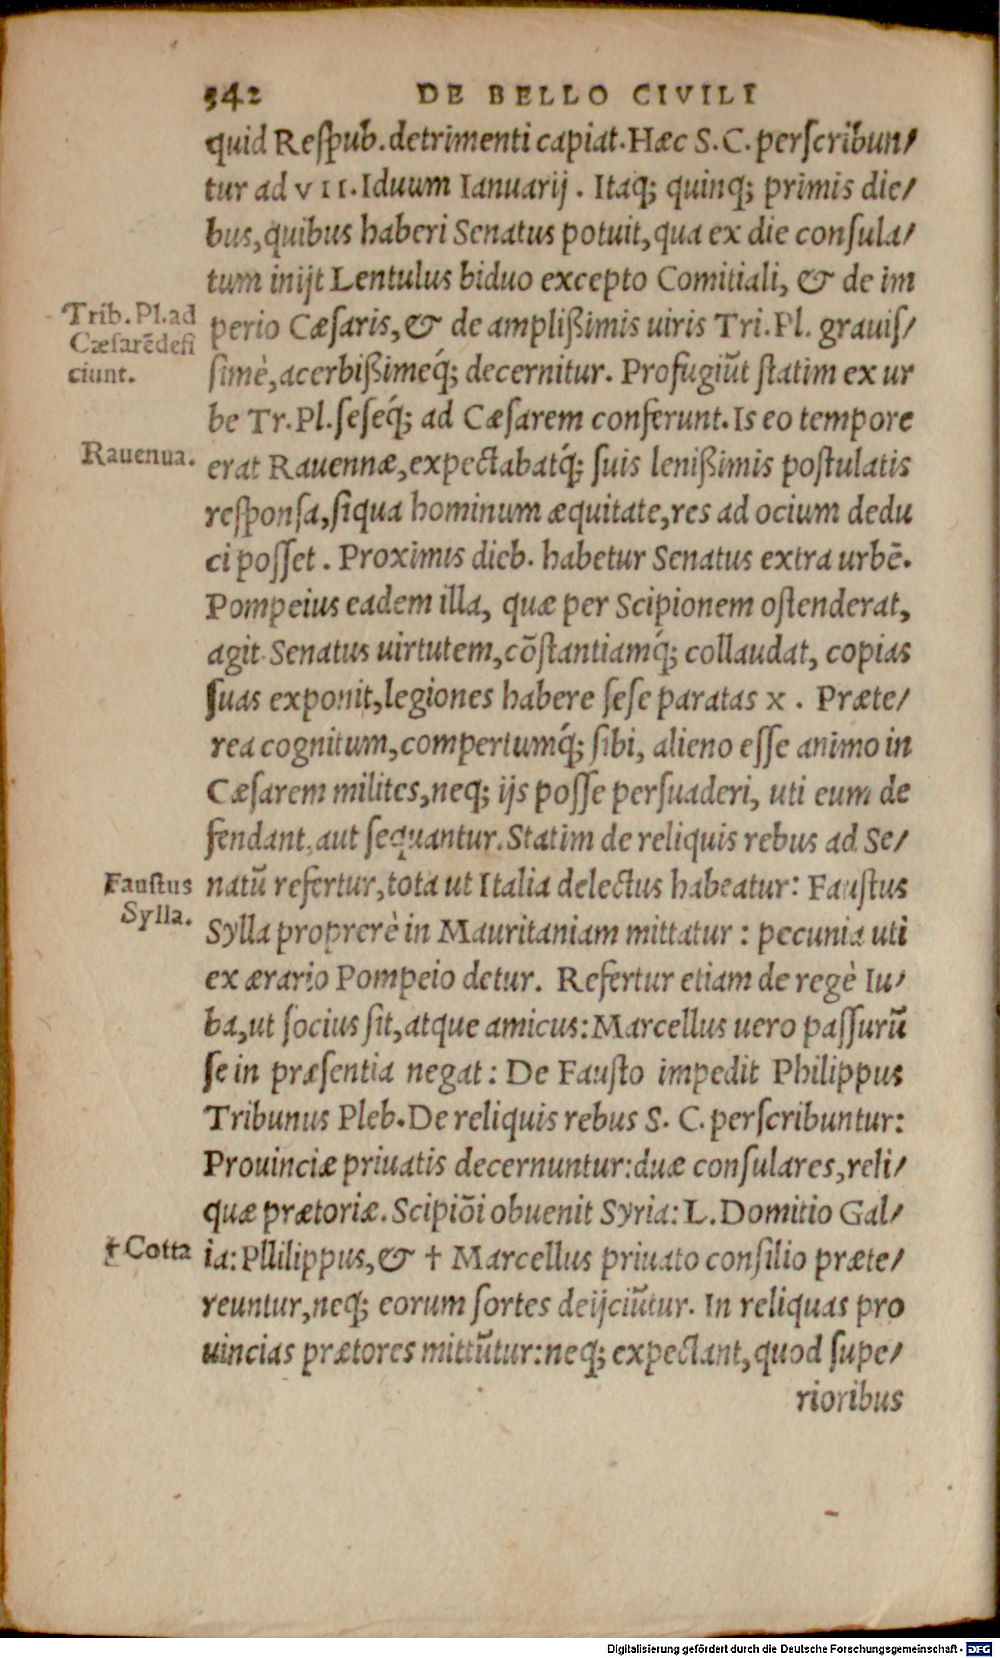 342 DE BELLO CIVILI
quid Respub. detrimenti capiat. Hæc S. C. perscribun/
tur ad VII. Iduum Ianuarij. Itaq; quinq; primis die/
bus, quibus haberi Senatus potuit, qua ex die consula/
tum inijt Lentulus biduo excepto Comitiali, & de im
Trib. Pl. ad
Cæsarē defi
ciunt.
perio Cæsaris, & de amplißimis uiris Tri. Pl. grauis/
simè, acerbißimeq́; decernitur. Profugiūt statim ex ur
be Tr. Pl. seseq́; ad Cæsarem conferunt. Is eo tempore
Rauenua.
erat Rauennæ, expectabatq́; suis lenißimis postulatis
responsa, siqua hominum æquitate, res ad ocium dedu
ci posset. Proximis dieb. habetur Senatus extra urbē.
Pompeius eadem illa, quæ per Scipionem ostenderat,
agit. Senatus uirtutem, cōstantiamq́; collaudat, copias
suas exponit, legiones habere sese paratas x. Præte/
rea cognitum, compertumq́; sibi, alieno esse animo in
Cæsarem milites, neq; ijs posse persuaderi, uti eum de
fendant, aut sequantur. Statim de reliquis rebus ad Se/
Faustus
Sylla.
natū refertur, tota ut Italia delectus habeatur: Faustus
Sylla proprerè in Mauritaniam mittatur: pecunia uti
ex ærario Pompeio detur. Refertur etiam de regè Iu/
ba, ut socius sit, atque amicus: Marcellus uero passurū
se in præsentia negat: De Fausto impedit Philippus
Tribunus Pleb. De reliquis rebus S. C. perscribuntur:
Prouinciæ priuatis decernuntur: duæ consulares, reli/
quæ prætoriæ. Scipiōi obuenit Syria: L. Domitio Gal/
† Cotta
ia: Pllilippus, & † Marcellus priuato consilio præte/
reuntur, neq; eorum sortes deijciūtur. In reliquas pro
uincias prætores mittūtur: neq; expectant, quod supe/
rioribus
Digitalisierung gefördert durch die Deutsche Forschungsgemeinschaft - DFG